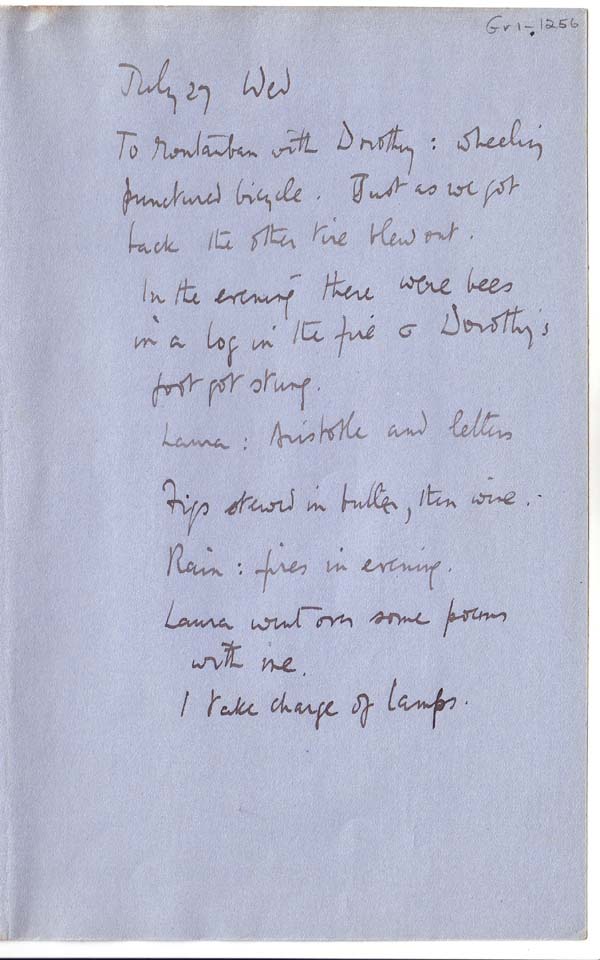 Gv1-1256
July 27 Wed
To Montauban with Dorothy : wheeling
punctured bicycle. Just as we got
back the other tire blew out.
In the evening there were bees
in a log in the fire & Dorothy's
foot got stung.
Laura : Aristotle and letters
Figs stewed in butter, then wine.
Rain : fires in evening.
Laura went over some poems
with me.
I take charge of lamps.